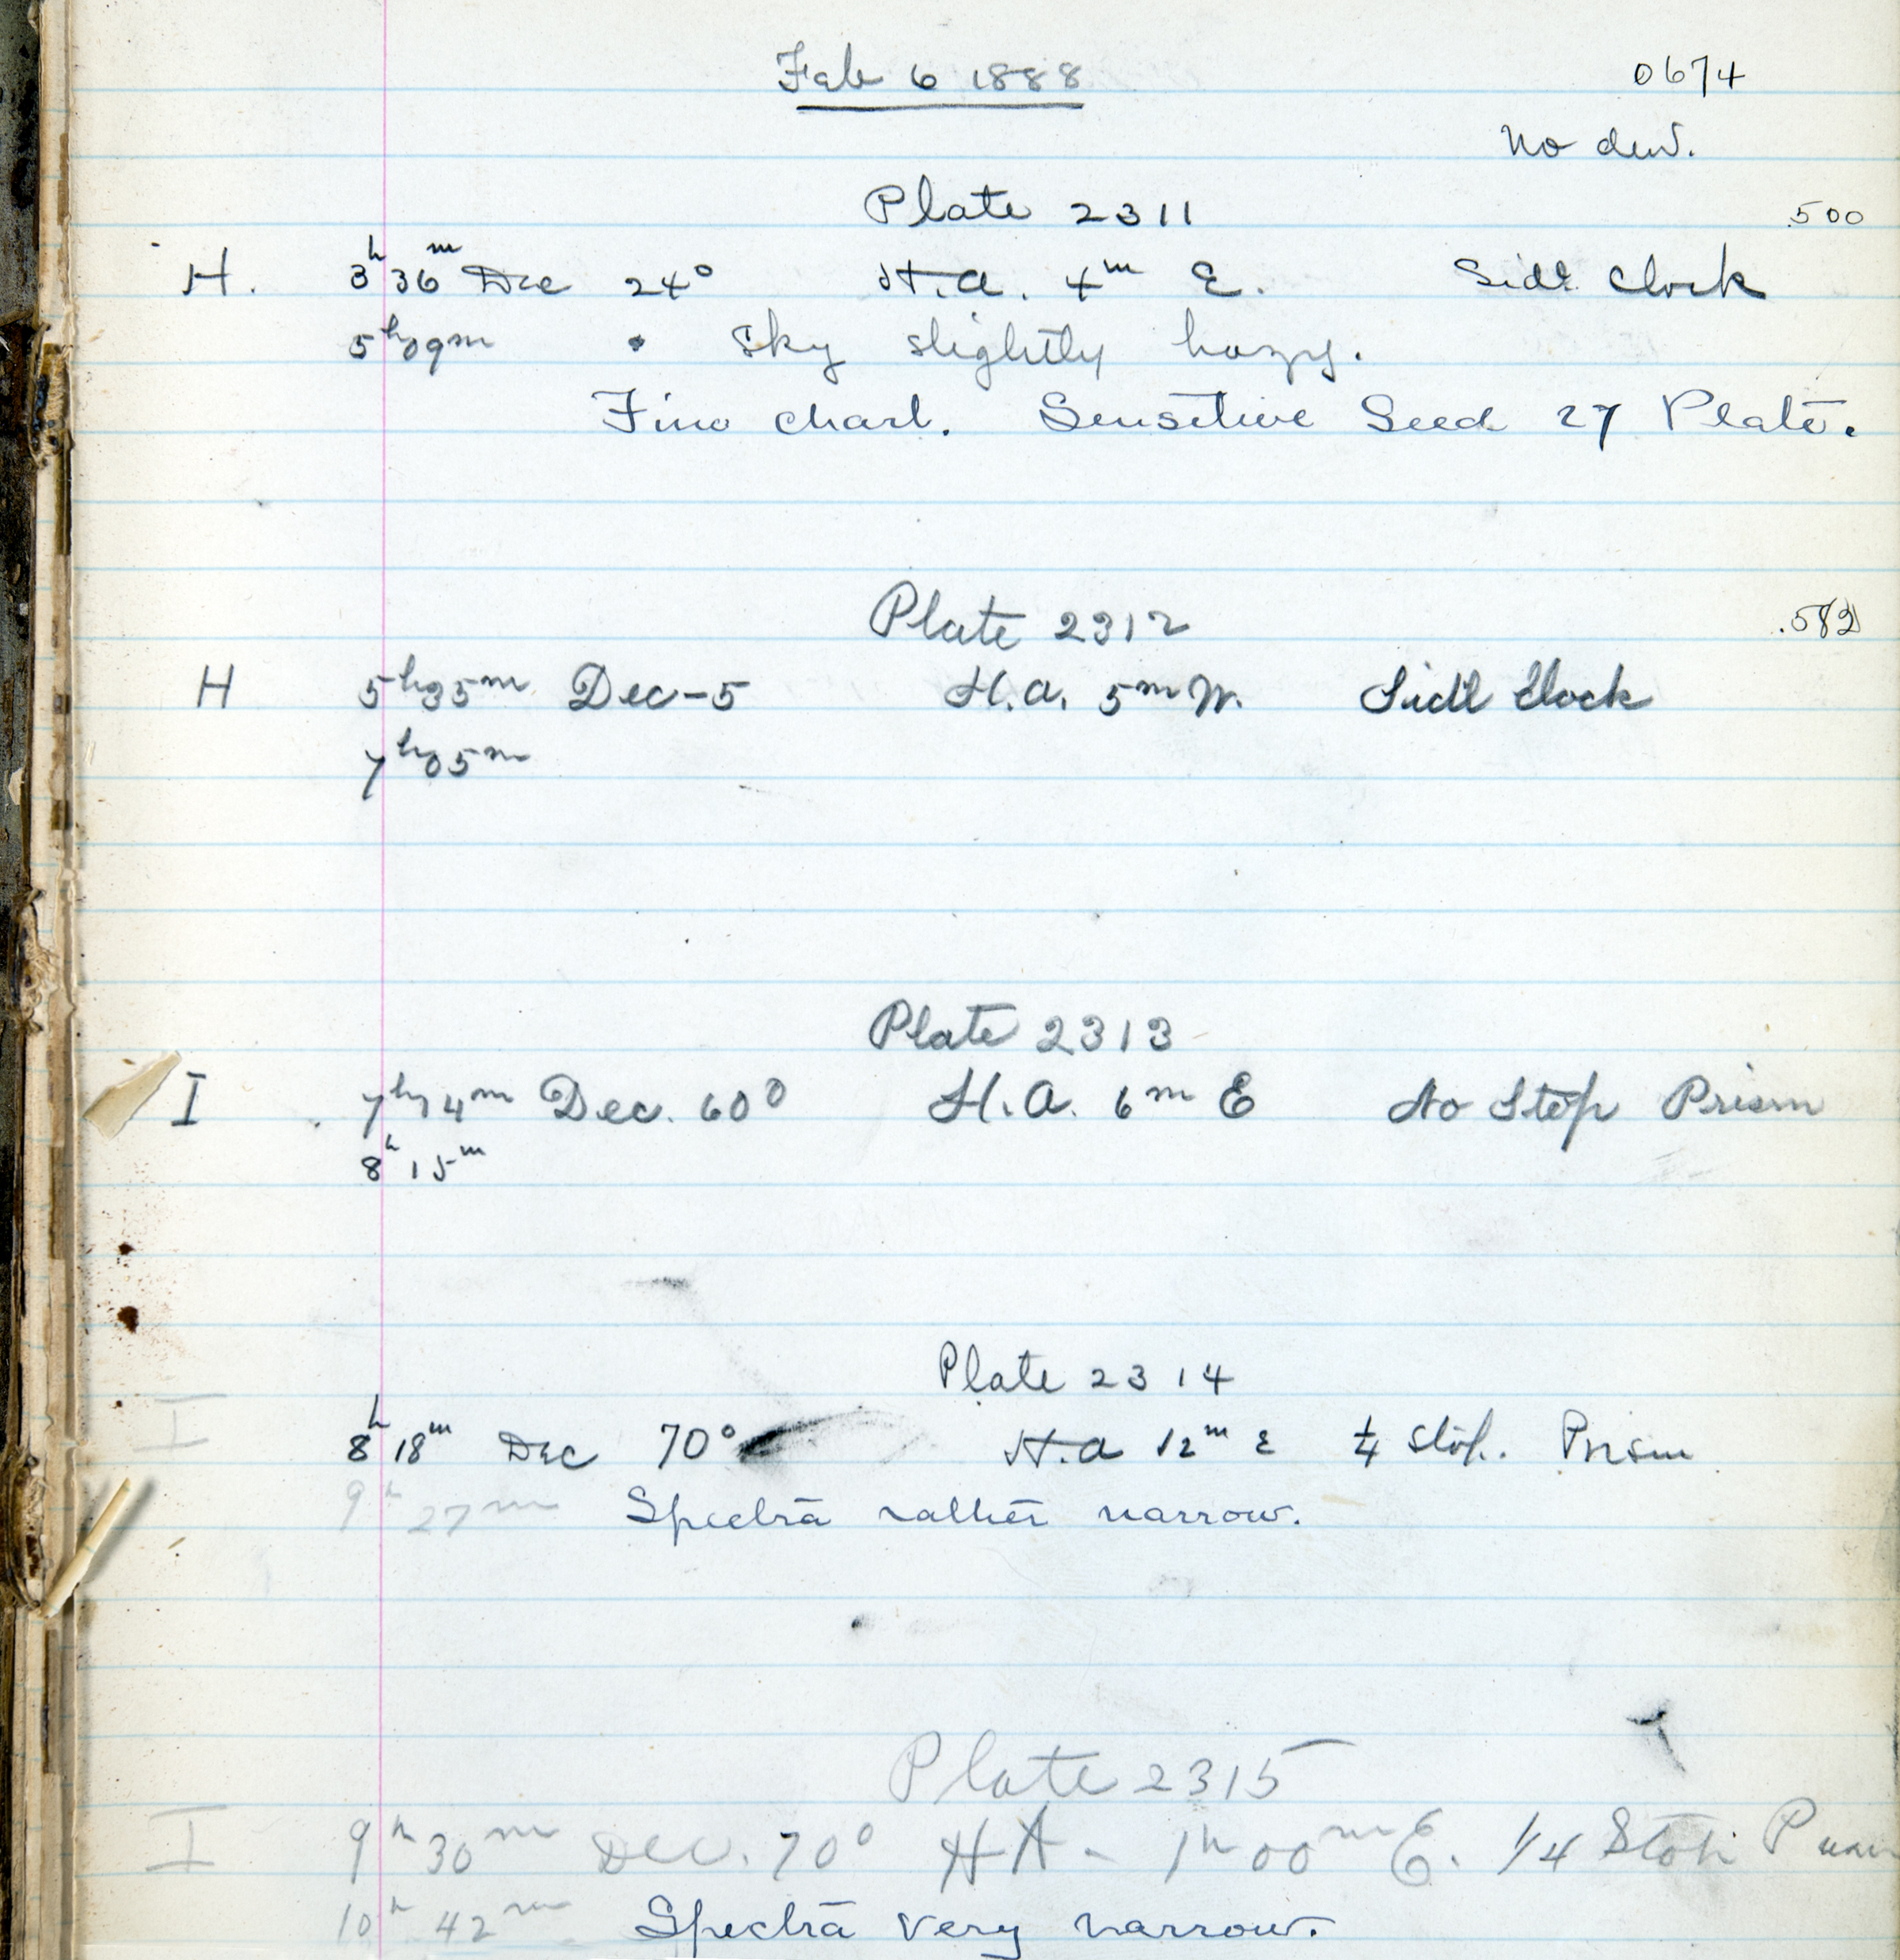 Feb 6 1888
0674
No dew.
Plate 2311
.500
H. 3h 36m Dec 24° H.A. 4m E. Sidl. Clock
5h 09m Sky slightly hazy.
Fine chart. Sensitive Seed 27 Plate.
Plate 2312
.582
H 5h 35m Dec -5 H.A. 5m W. Sidl Clock
7h 05m
Plate 2313
I 7h 14m Dec. 60° H.A. 6m E No Stop Prism
8h 15m
Plate 2314
I 8h 18m Dec 70° H.A 12m E 1/4 stop. Prism
9h 27m Spectra rather narrow.
Plate 2315
I 9h 30m Dec. 70° HA - 1h 00m E. 1/4 Stop Prism
10h 42m Spectra very narrow.